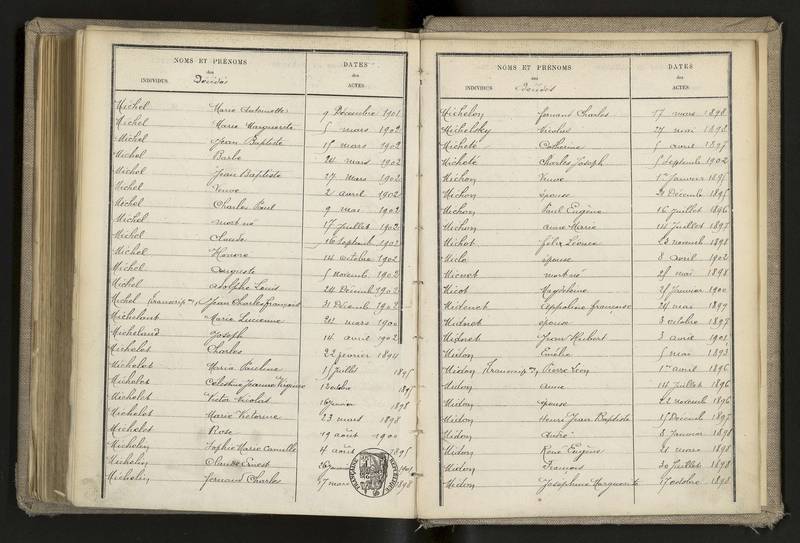 NOMS ET PRÉNOMS
des
INDIVIDUS Décédés
DATES
des
ACTES
Michel Marie Antoinette 9 Décembre 1901
Michel Marie Marguerite 5 mars 1902
Michel Jean Baptiste 15 mars 1902
Michel Barbe 24 mars 1902
Michel Jean Baptiste 27 Mars 1902
Michel Veuve 2 avril 1902
Michel Charles Paul 9 mai 1902
Michel mort né 17 Juillet 1902
Michel Claude 16 Septemb 1902
Michel Honoré 14 octobre 1902
Michel Auguste 5 novemb. 1902
Michel Adolphe Louis 24 Décemb 1902
Michel (transcrip on) Jean Charles François 31 Décemb 1902
Michelant Marie Lucienne 24 mars 1900
Michelaud Joseph 14 avril 1902
Michelot Charles 22 février 1894
Michelot Maria Pauline 15 Juillet 1895
Michelot Célestine Jeanne Virginie 12 octobre 1895
Michelot Victor Nicolas 16 Janvier 1898
Michelot Marie Victorine 23 mars 1898
Michelot Rose 19 août 1900
Michelin Sophie Marie Camille 4 août 1895
Michelin Claude Ernest 26 Janvier
Michelin Fernand Charles 17 mars 1898
NOMS ET PRÉNOMS
des
INDIVIDUS Décédés
DATES
des
ACTES
Michelon Fernand Charles 17 mars 1898
Michelsky Nicolas 27 mai 1898
Michelé Catherine 5 avril 1897
Michelé Charles Joseph 5 Septemb 1902
Michon Veuve 1er Janvier 1895
Michon épouse Décemb 1895
Michon Paul Eugène 16 Juillet 1896
Michon Anne Marie 14 Juillet 1897
Michot Félix Léonce 23 novemb 1898
épouse 8 avril 1902
mort né 25 mai 1898
Micot Magdeleine 25 Janvier 1900
Midenet Appoline françoise 24 mars 1897
Midnet épouse 3 octobre 1897
Midnet Jean Hubert 3 avril 1901
Midon Emélie 5 mai 1893
Midon (transcrip on) Pierre Léon 1er avril 1896
Midon Anne 14 Juillet 1896
Midon épouse 22 novemb 1896
Midon Henri Jean Baptiste 15 Décemb 1897
Midon André 8 Janvier 1898
Midon René Eugène 21 mars 1898
Midon François 30 Juillet 1898
Midon Joséphine Marguerite 17 octobre 1898